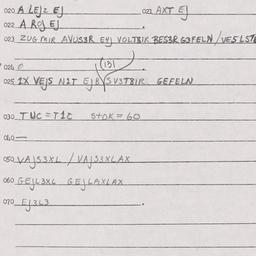 020 A LEJ2 EJ 021 AXT EJ
022 A ROJ EJ
023 ZUG MIR AVUS3R EYJ VOLTBIK BES3R GOFELN / VESLST
024 O (131)
025 1X VEJS NIT EJB SVSTBIR GEFELN
030 TUC = T1C STOK = 60
040 —
050 VAJS3XL / VAJS3XLAX
060 GEJL3XL GEJLAXLAX
070 EJ3L3